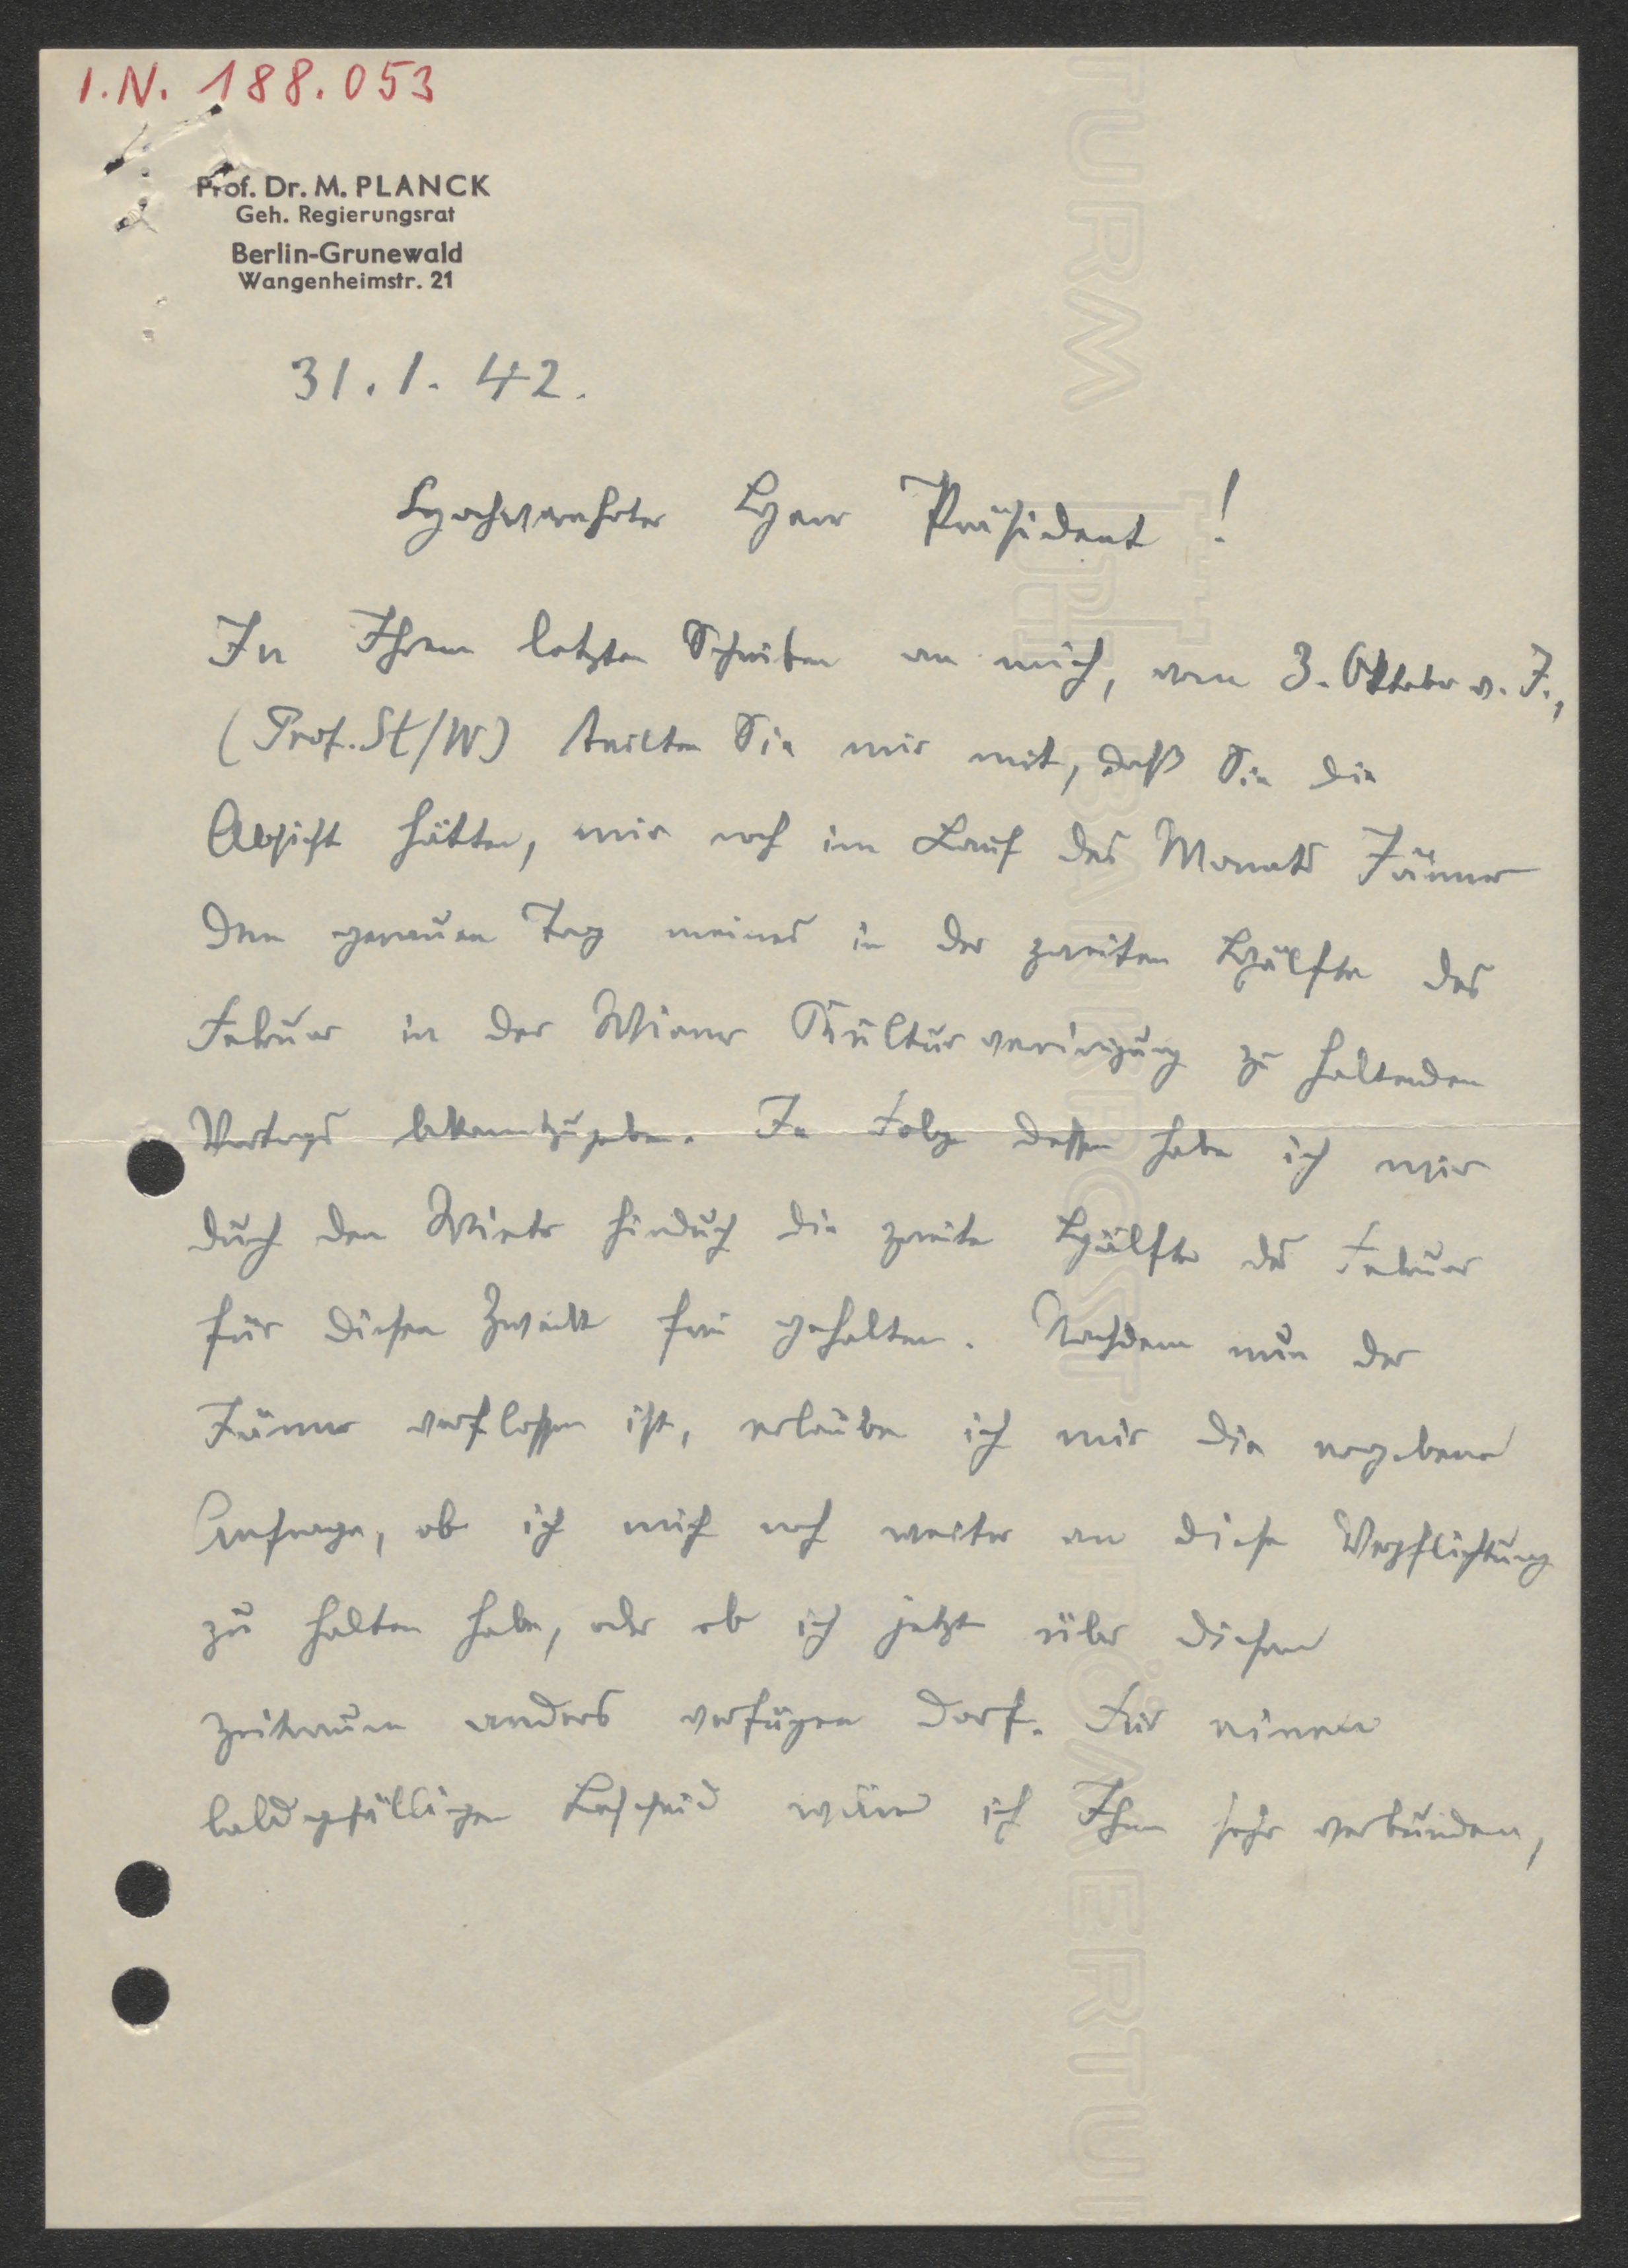 I.N. 188.053
Prof. Dr. M. PLANCK
Geh. Regierungsrat
Berlin-Grunewald
Wangenheimstr. 21
31. 1. 42.
Hochverehrter Herr Präsident!
In Ihrem letzten Schreiben an mich, vom 3. Oktober v. J.,
(Prof. St/W) teilten Sie mir mit, daß Sie die
Absicht hätten, mir noch im Lauf des Monats Jänner
den genauen Tag meines in der zweiten Hälfte des
Februar in der Wiener Kulturvereinigung zu haltenden
Vortrags bekanntzugeben. In Folge dessen habe ich mir
durch den Winter hindurch die zweite Hälfte des Februar
für diesen Zweck frei gehalten. Nachdem nun der
Jänner verflossen ist, erlaube ich mir die ergebene
Anfrage, ob ich mich noch weiter an diese Verpflichtung
zu halten habe, oder ob ich jetzt über diesen
Zeitraum anders verfügen darf. Für einen
baldgefälligen Bescheid wäre ich Ihnen sehr verbunden,